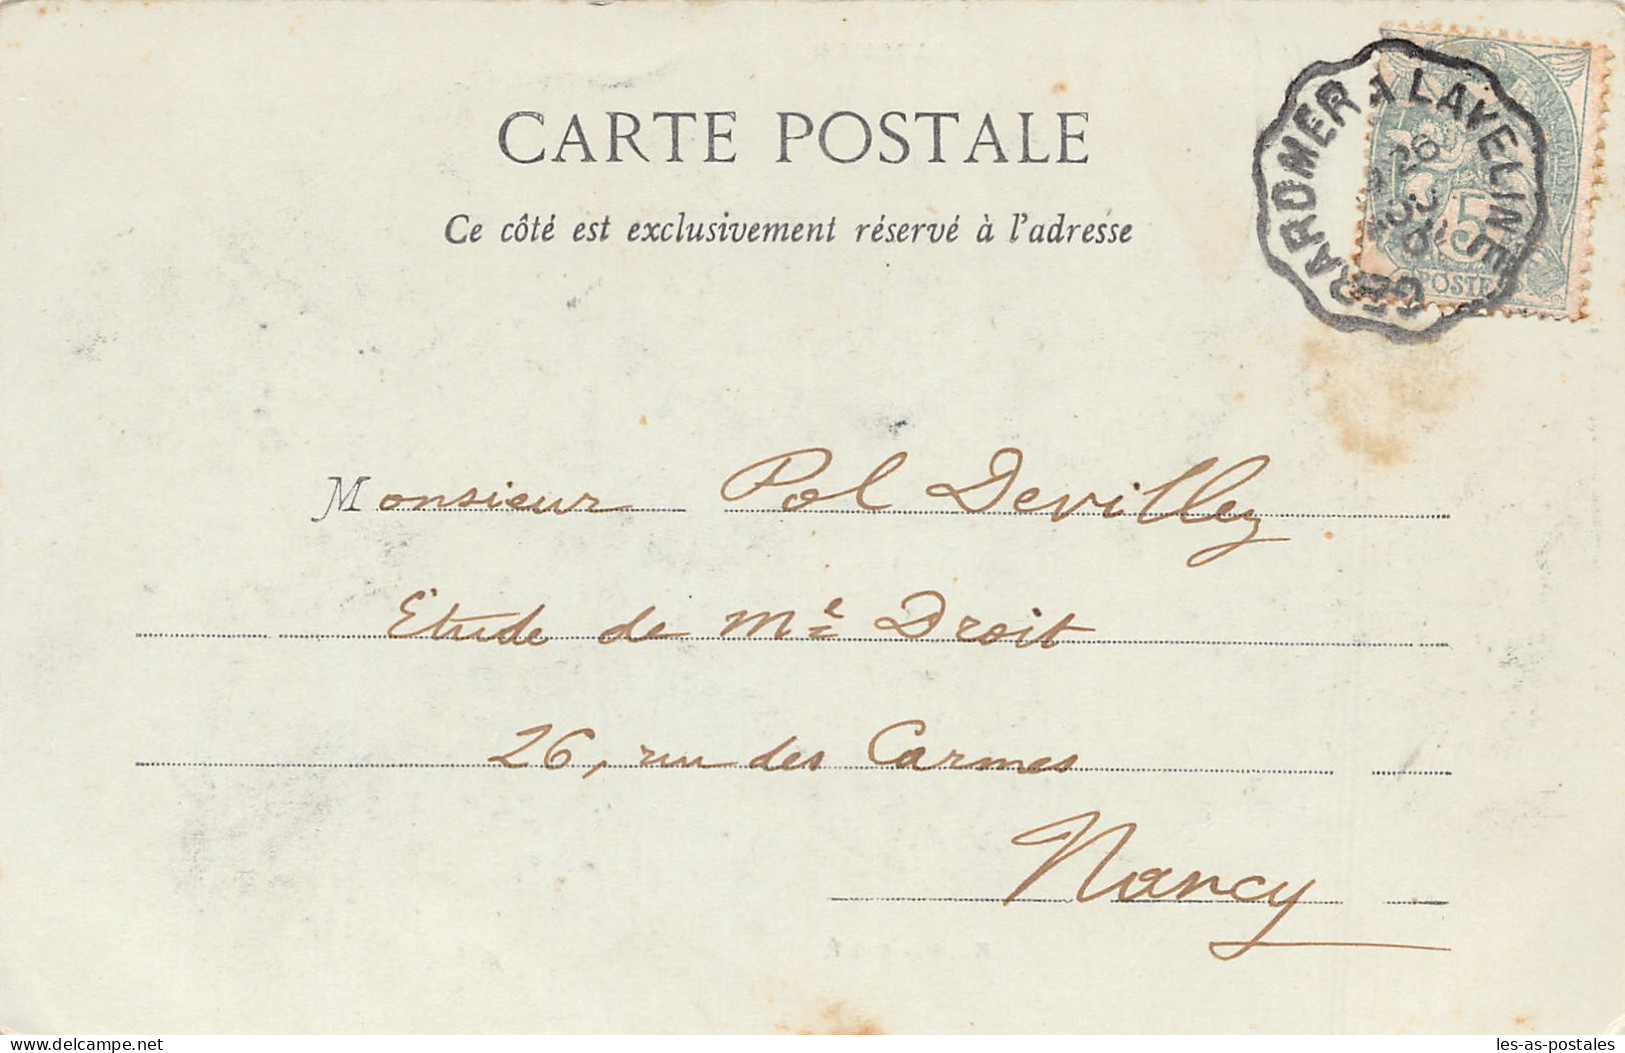 CARTE POSTALE
Ce côté est exclusivement réservé à l'adresse
GERARDMER A LAVELINE
26
5
POSTES
Monsieur Pol Devilley
Etude de Me Droit
26, rue des Carmes
Nancy
www.delcampe.net
les-as-postales